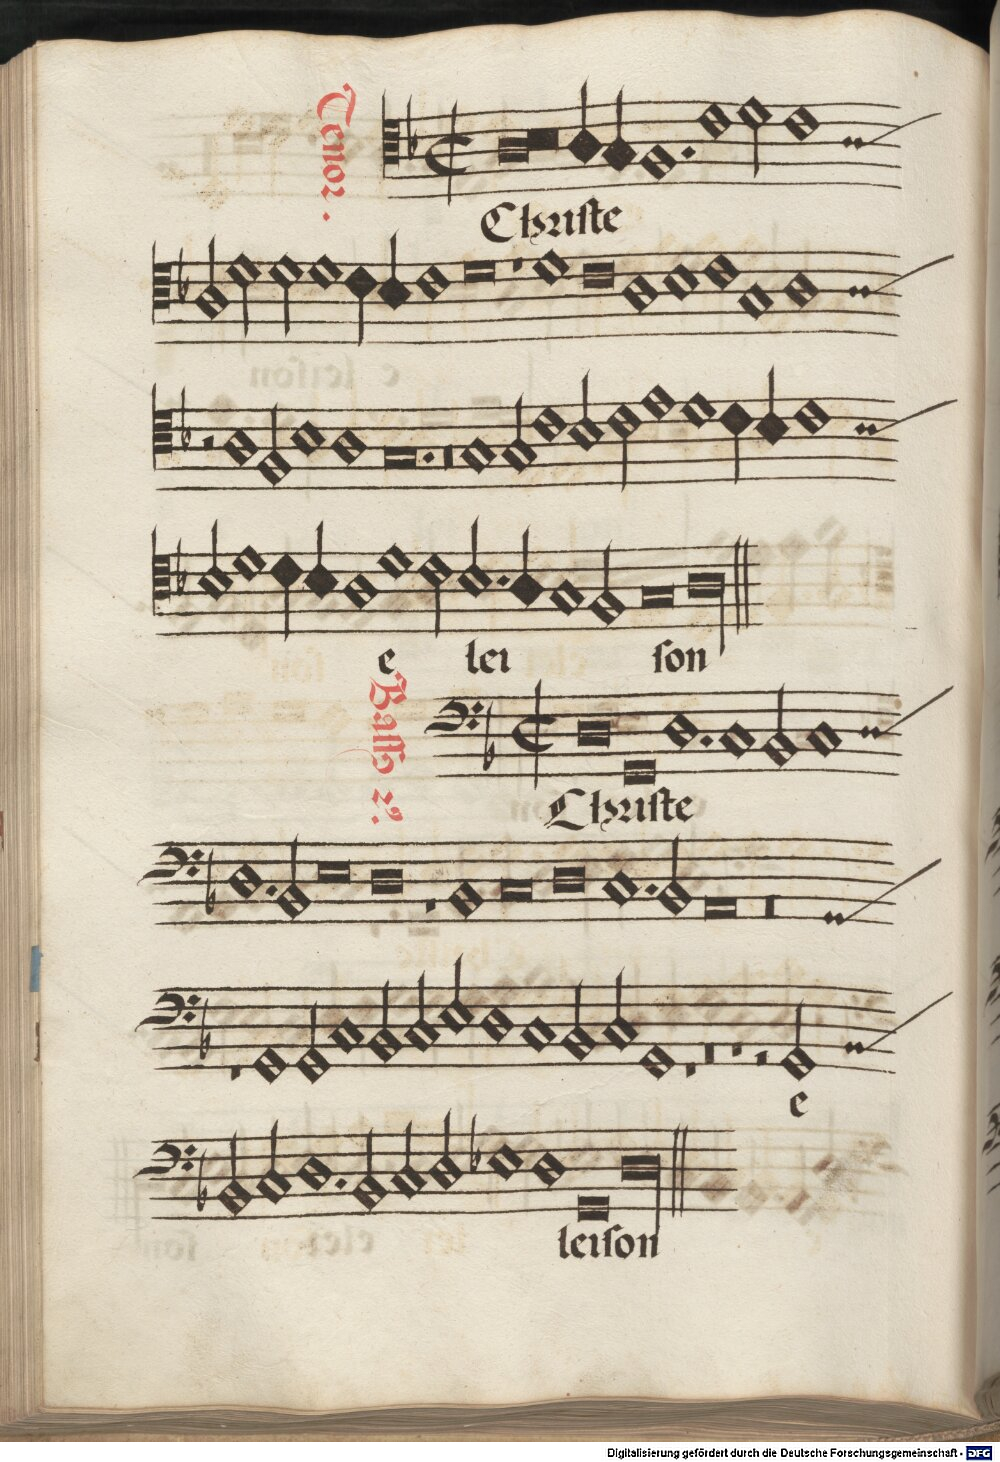 Tenor.
Christe
e lei son
Bassus 2us.
Christe
e
leison
Digitalisierung gefördert durch die Deutsche Forschungsgemeinschaft - DFG